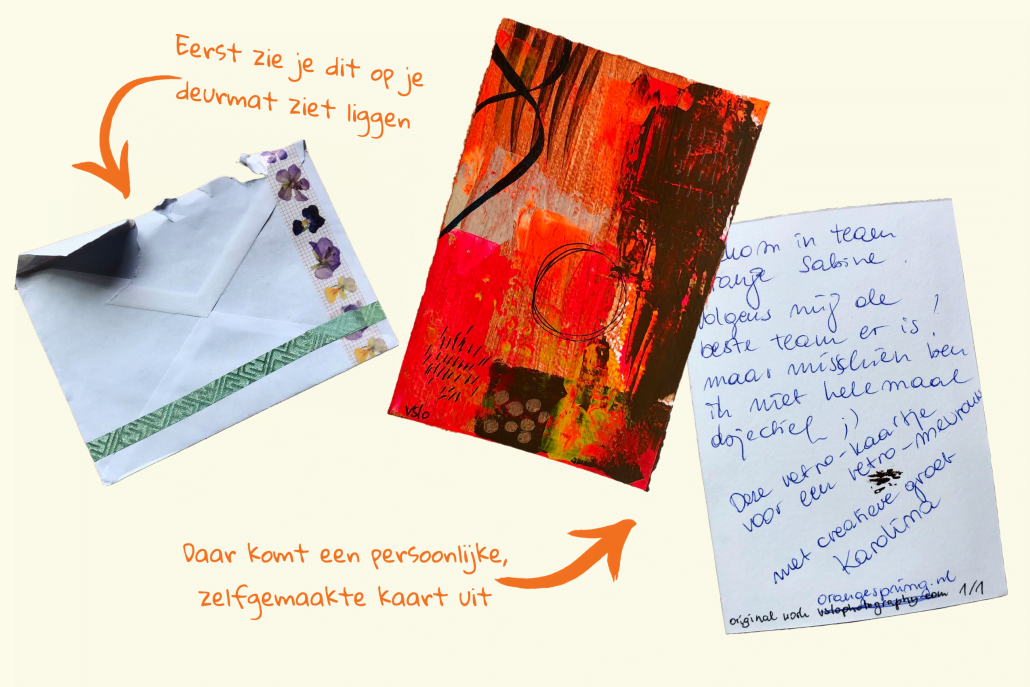 Eerst zie je dit op je
deurmat ziet liggen
vslo
kom in team
ranje Sabine.
volgens mij de
beste team er is!
maar misschien ben
ik niet helemaal
ojectief ;)
Deze retro-kaartje
voor een retro-mevrouw
met creatieve groet
Karolina
orangespring.nl
original work vslophotography.com 1/1
Daar komt een persoonlijke,
zelfgemaakte kaart uit